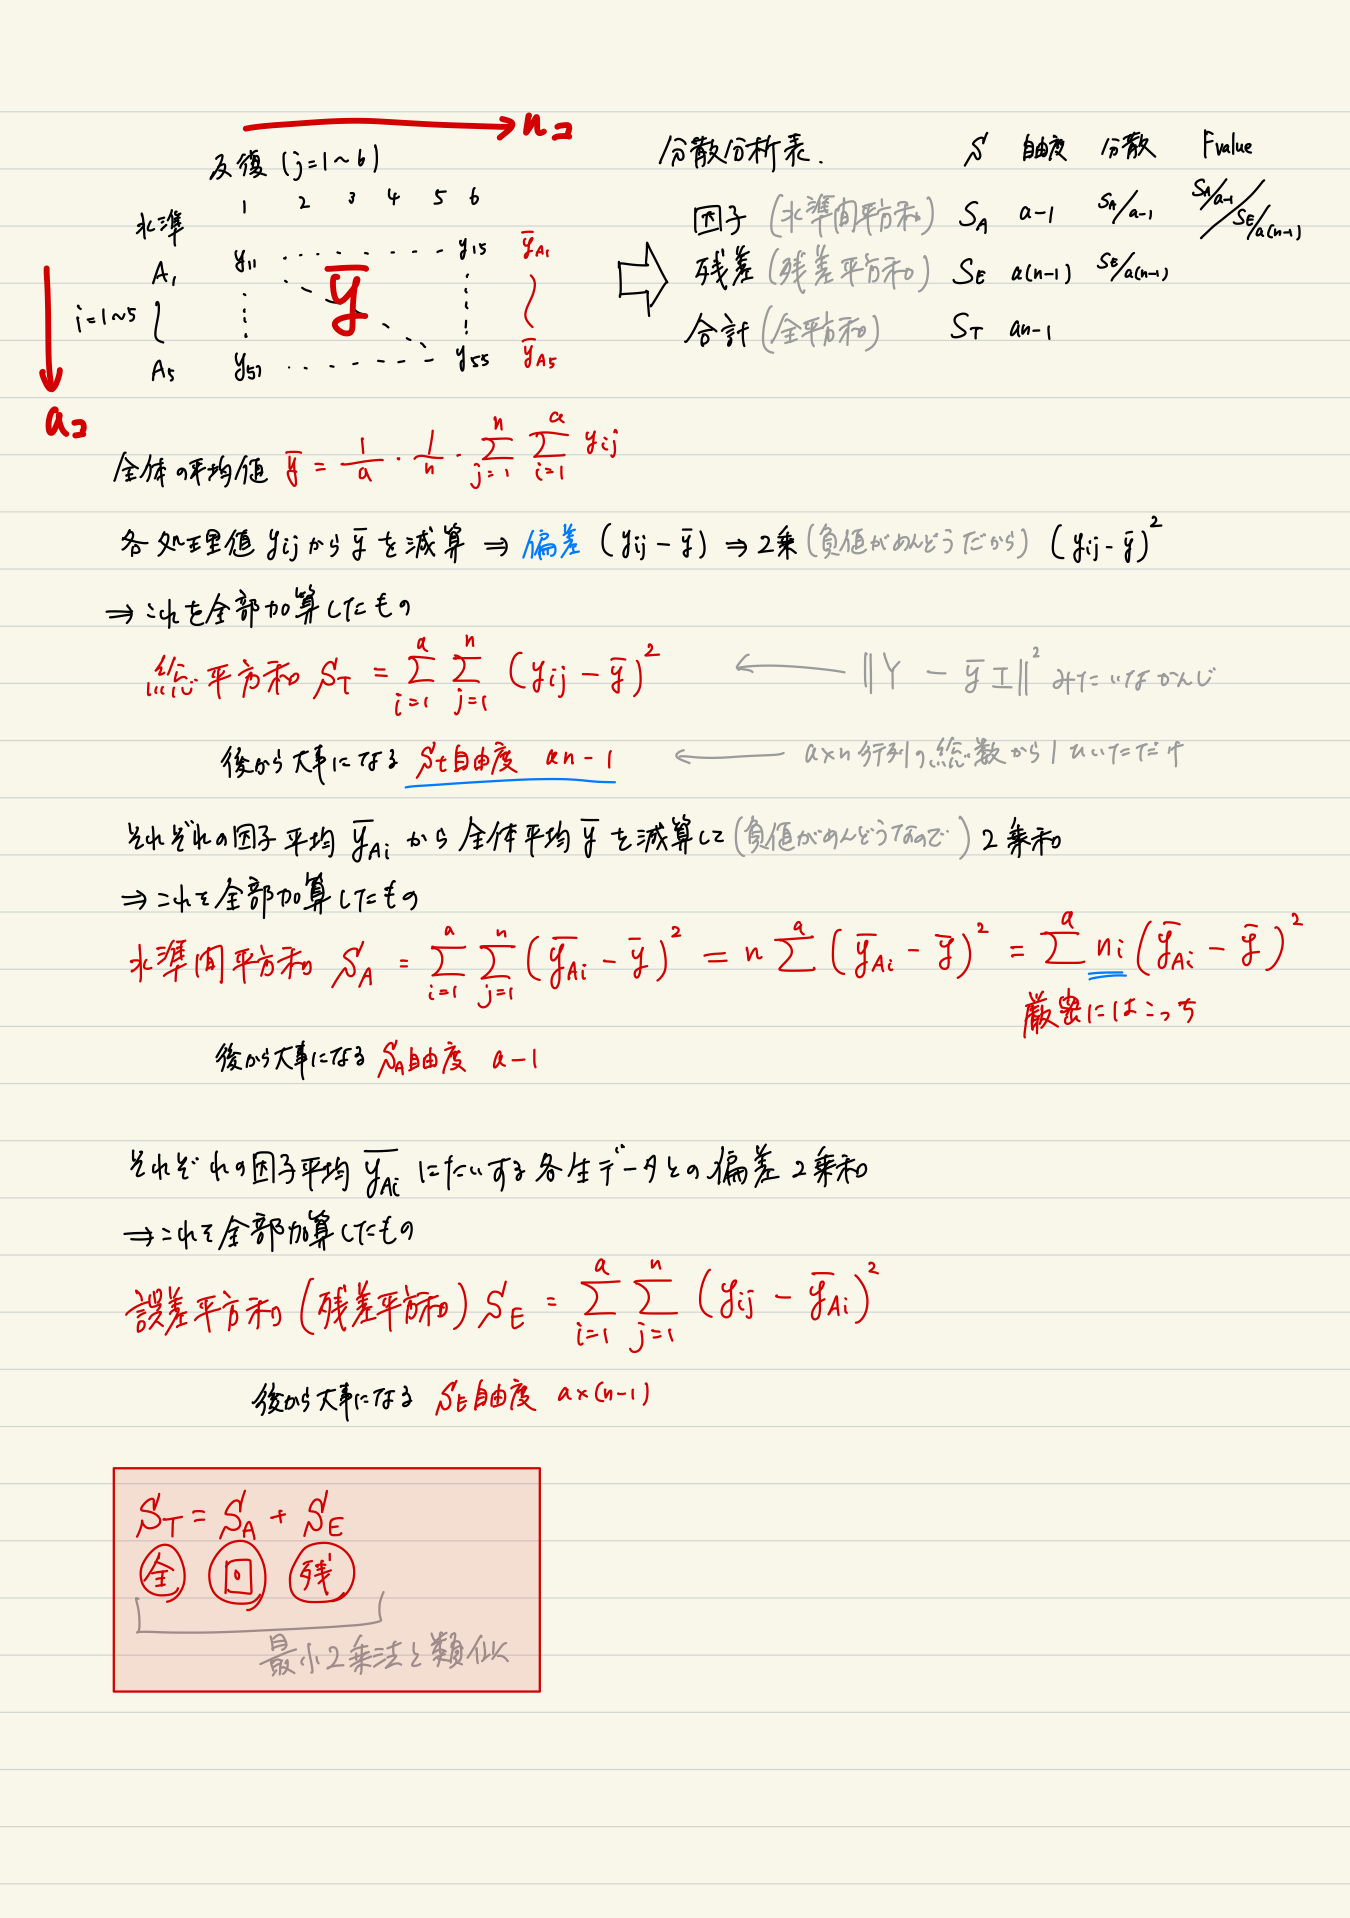 n コ
反復 (j=1~6)
水準 1 2 3 4 5 6
A₁ y₁₁ ・・・・・・ y₁₅ ȳ_A₁
i=1~5 ȳ
A₅ y₅₁ ・・・・・・ y₅₅ ȳ_A₅
a コ
分散分析表. S 自由度 分散 Fvalue
因子 (水準間平方和) S_A a-1 S_A/a-1 S_A/a-1 / S_E/a(n-1)
残差 (残差平方和) S_E a(n-1) S_E/a(n-1)
合計 (全平方和) S_T an-1
全体の平均値 ȳ = 1/a · 1/n · Σ_{j=1}^{n} Σ_{i=1}^{a} y_ij
各処理値 y_ij から ȳ を減算 ⇒ 偏差 (y_ij - ȳ) ⇒ 2乗 (負値がめんどうだから) (y_ij - ȳ)²
⇒ これを全部加算したもの
総平方和 S_T = Σ_{i=1}^{a} Σ_{j=1}^{n} (y_ij - ȳ)² ← ‖Y - ȳI‖² みたいなかんじ
後から大事になる St自由度 an-1 ← a×n 行列の総数から1ひいただけ
それぞれの因子平均 ȳ_Ai から全体平均 ȳ を減算して (負値がめんどうなので) 2乗和
⇒ これを全部加算したもの
水準間平方和 S_A = Σ_{i=1}^{a} Σ_{j=1}^{n} (ȳ_Ai - ȳ)² = n Σ^{a} (ȳ_Ai - ȳ)² = Σ^{a} ni (ȳ_Ai - ȳ)²
厳密にはこっち
後から大事になる S_A自由度 a-1
それぞれの因子平均 ȳ_Ai にたいする各生データとの偏差2乗和
⇒ これを全部加算したもの
誤差平方和 (残差平方和) S_E = Σ_{i=1}^{a} Σ_{j=1}^{n} (y_ij - ȳ_Ai)²
後から大事になる S_E自由度 a×(n-1)
S_T = S_A + S_E
全 回 残
最小2乗法と類似